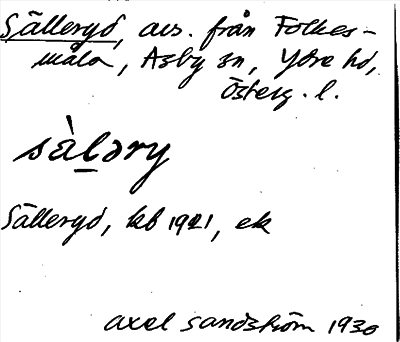 Sälleryd, avs. från Folkes-
måla, Asby sn, Ydre hd,
Österg. l.
sàləry
Sälleryd, kb 1921, ek
axel sandström 1930